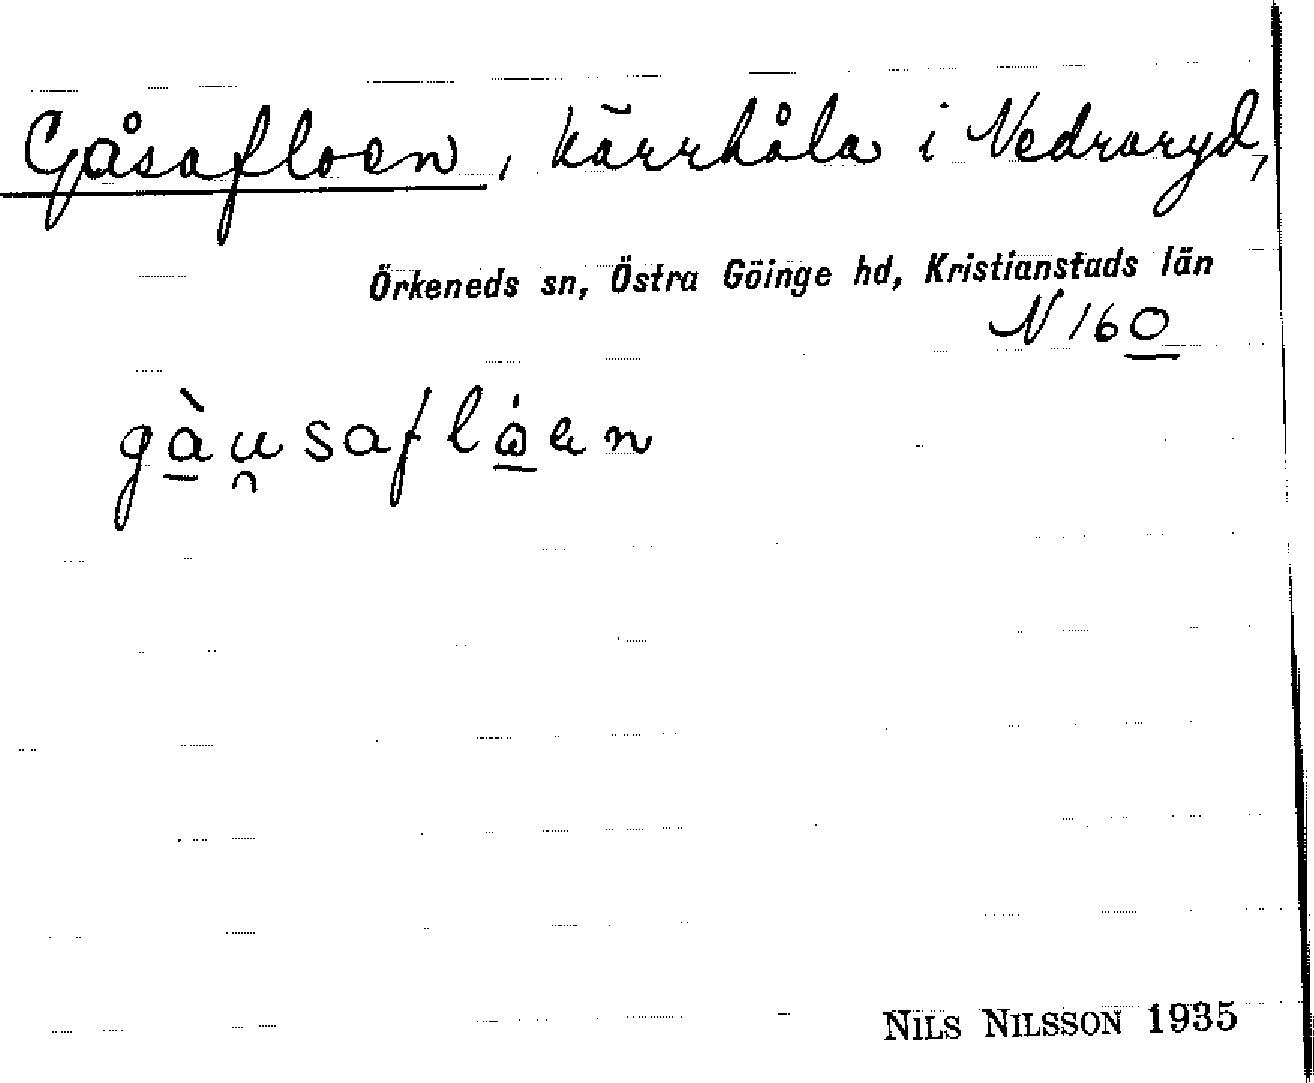 Gåsafloen, kärrhåla i Vedraryd,
Örkeneds sn, Östra Göinge hd, Kristianstads län
N 160
gàu̯saflóen
NILS NILSSON 1935